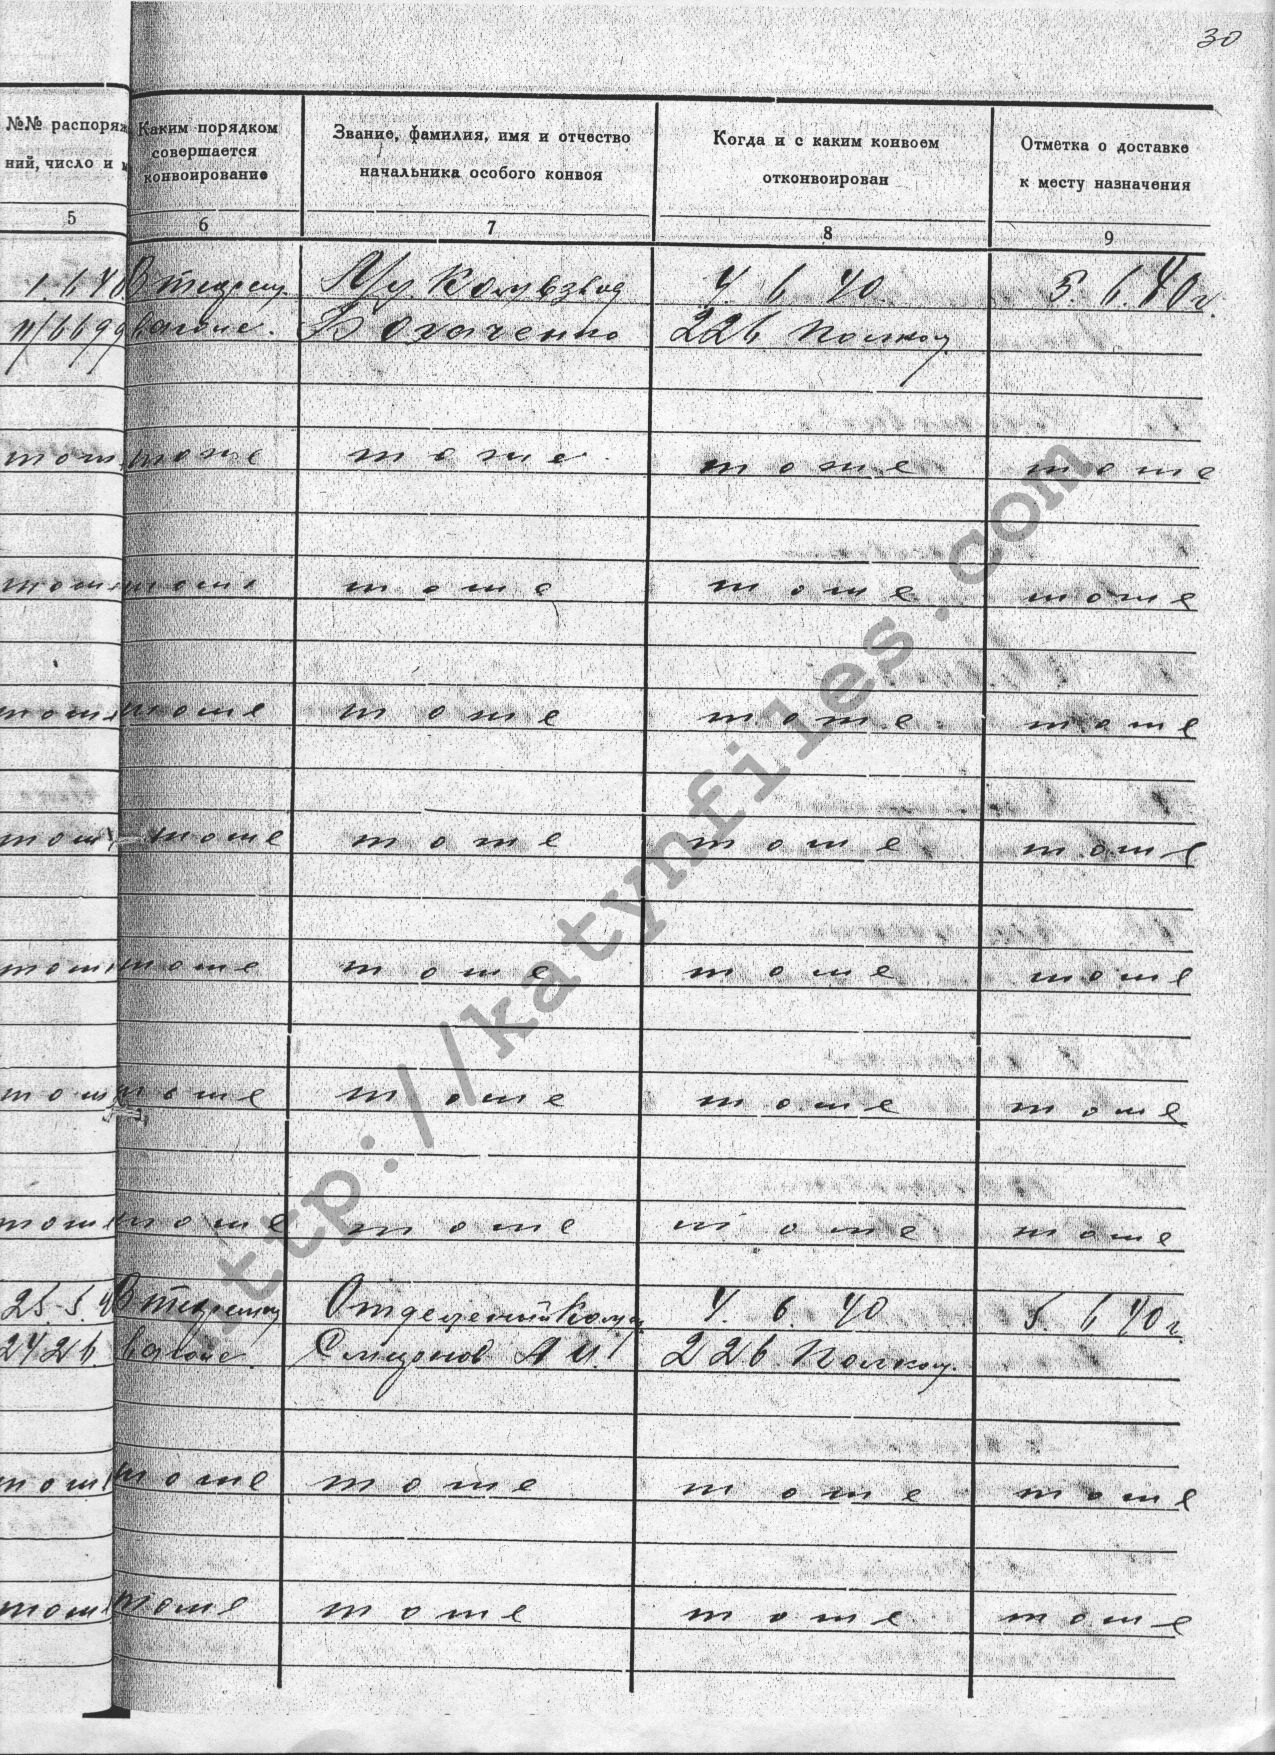 30
№№ распоряж
ний, число и
Каким порядком
совершается
конвоирование
Звание, фамилия, имя и отчество
начальника особого конвоя
Когда и с каким конвоем
отконвоирован
Отметка о доставке
к месту назначения
5 6 7 8 9
1. 6 40 В тюрем. 4. 6 40. 5. 6. 40 г.
11/6699 вагоне. 226 полком
тож тоже тоже тоже тоже
тож тоже тоже тоже тоже
тоже тоже тоже тоже тоже
тож тоже тоже тоже тоже
тож тоже тоже тоже тоже
тож тоже тоже тоже тоже
тоже тоже тоже тоже тоже
25. 5. 4 В тюремном 4. 6. 40 5. 6 40 г.
2426. вагоне. Смирнов А И. 226. полком.
тож тоже тоже тоже тоже
тож тоже тоже тоже тоже
http://katynfiles.com